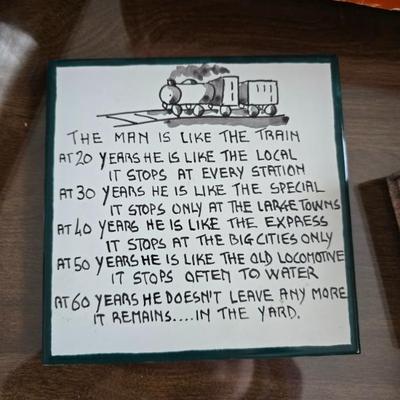 THE MAN IS LIKE THE TRAIN
AT 20 YEARS HE IS LIKE THE LOCAL
IT STOPS AT EVERY STATION
AT 30 YEARS HE IS LIKE THE SPECIAL
IT STOPS ONLY AT THE LARGE TOWNS
AT 40 YEARS HE IS LIKE THE EXPRESS
IT STOPS AT THE BIG CITIES ONLY
AT 50 YEARS HE IS LIKE THE OLD LOCOMOTIVE
IT STOPS OFTEN TO WATER
AT 60 YEARS HE DOESN'T LEAVE ANY MORE
IT REMAINS....IN THE YARD.